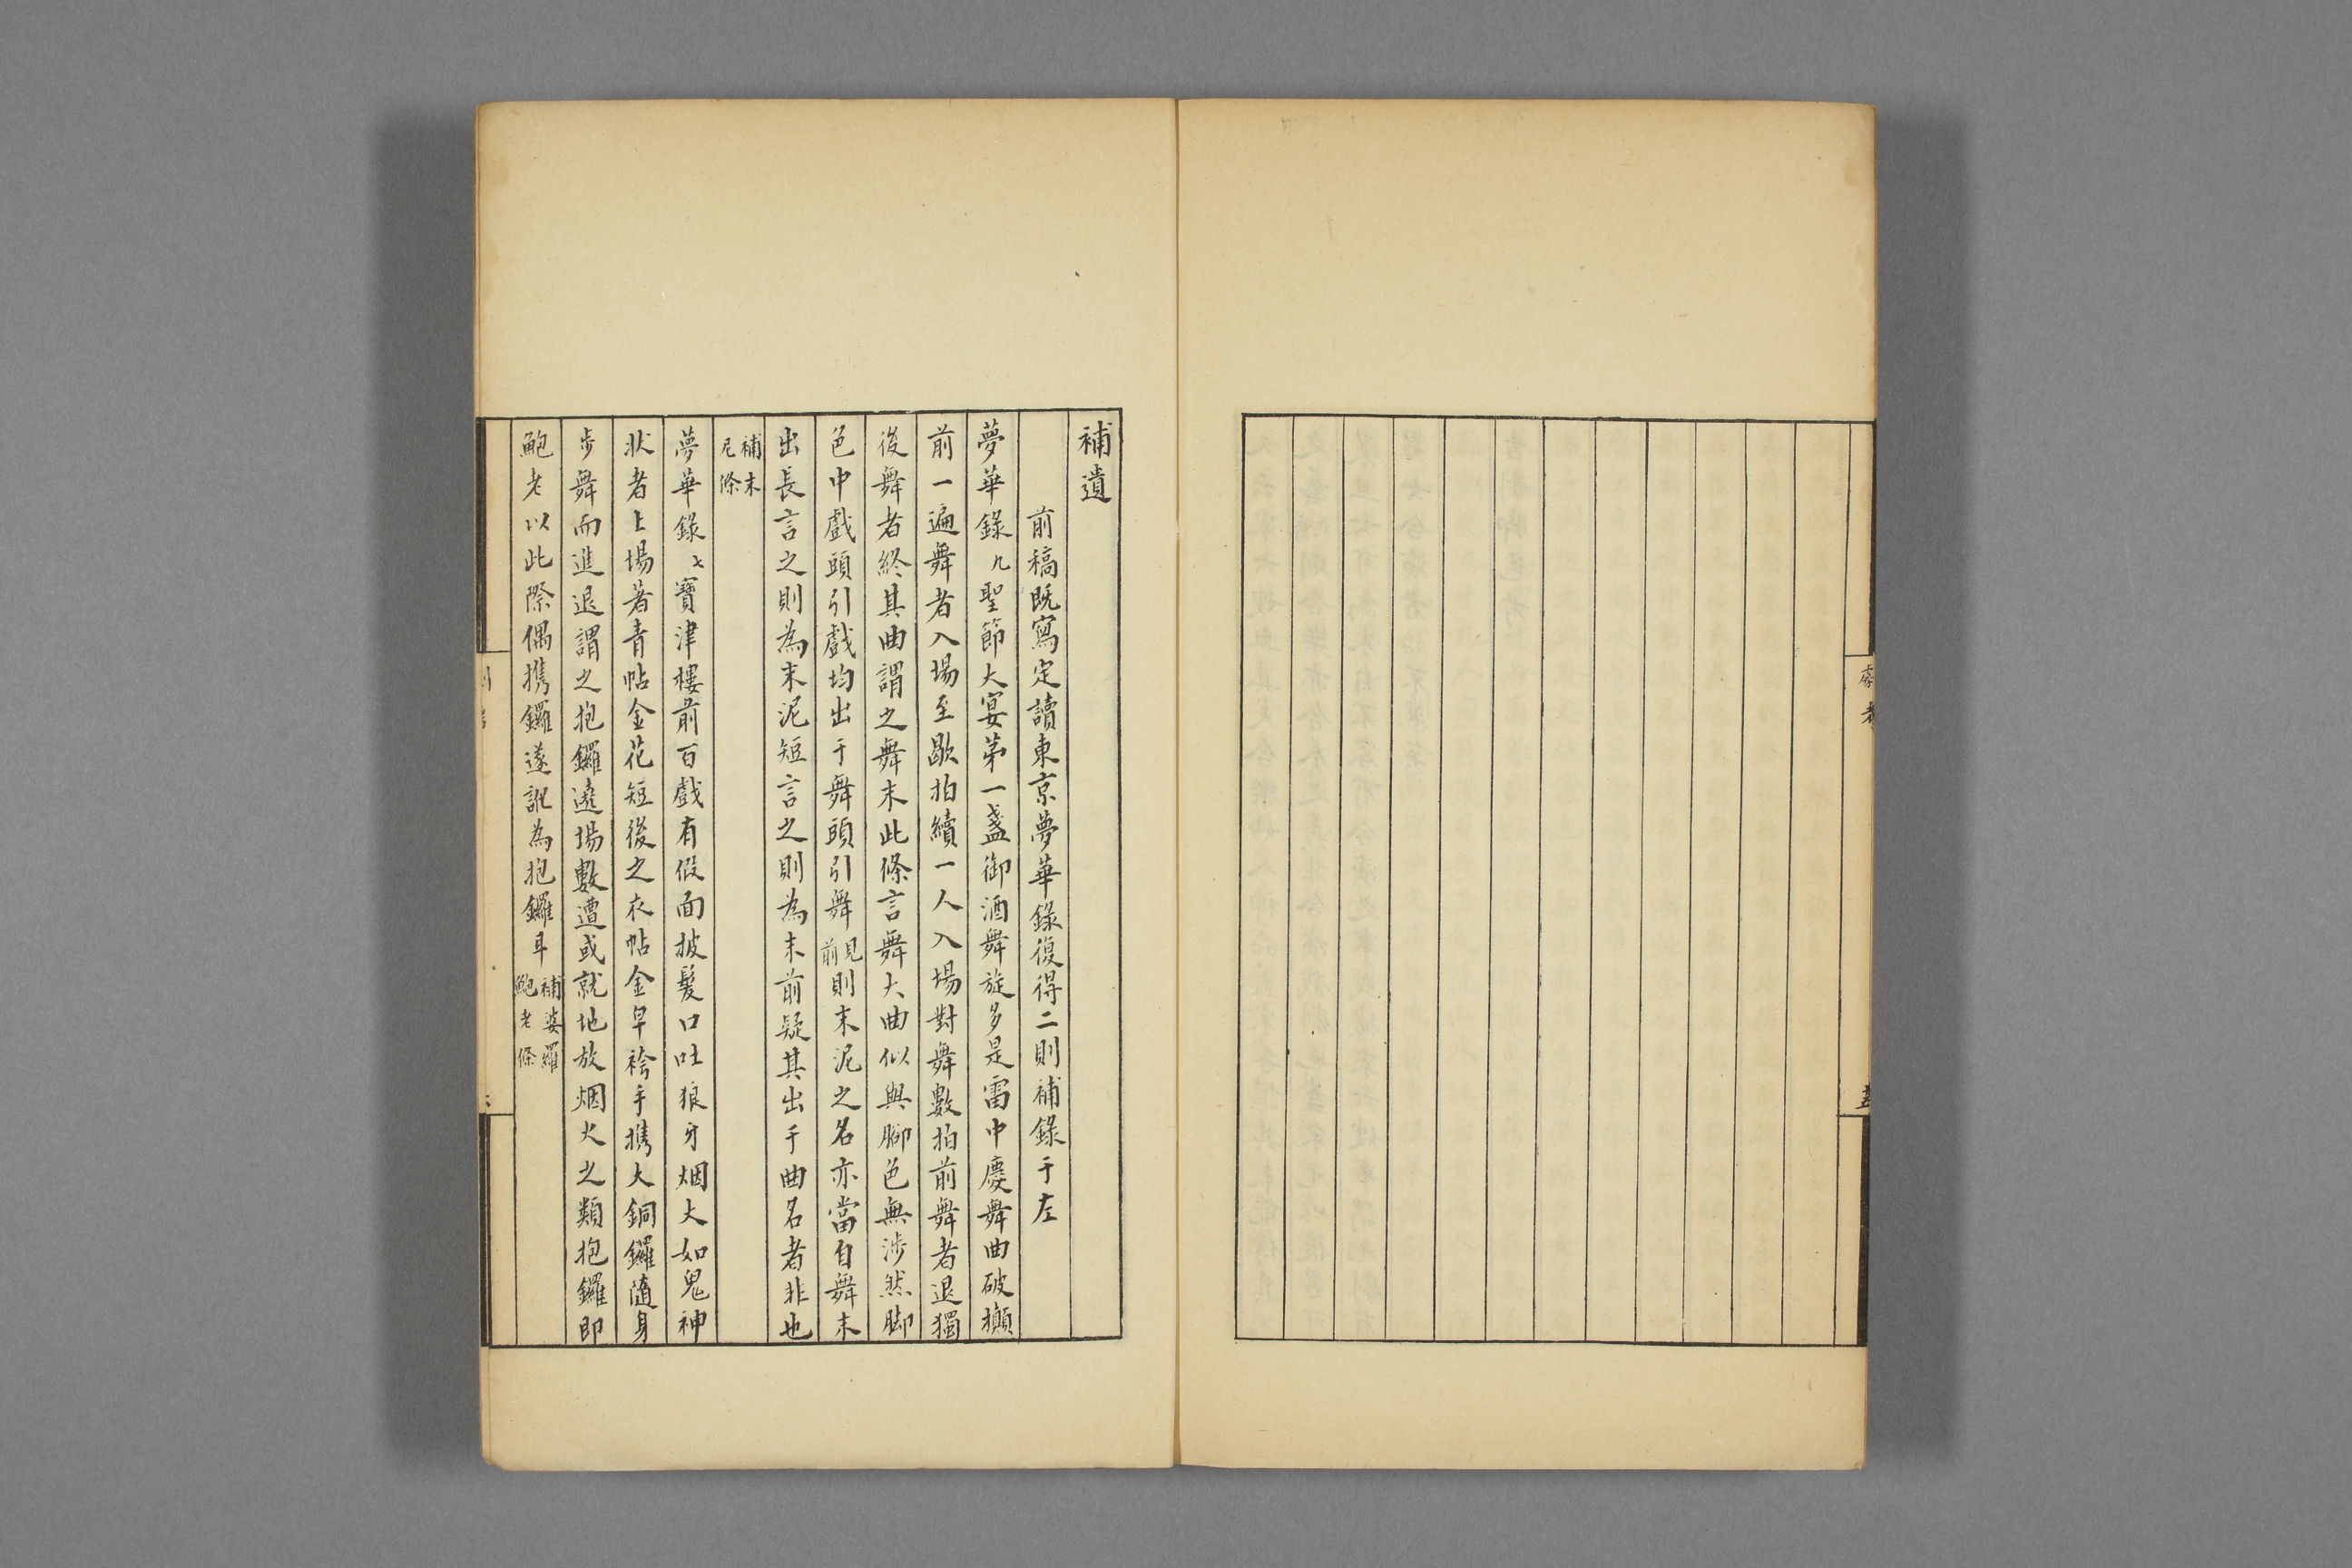 補遺
前稿既寫定讀東京夢華錄復得二則補錄于左
夢華錄九聖節大宴第一盞御酒舞旋多是雷中慶舞曲破攧
前一遍舞者入場至歇拍續一人入場對舞數拍前舞者退獨
後舞者終其曲謂之舞末此條言舞大曲似與腳色無涉然腳
色中戲頭引戲均出于舞頭引舞見前則末泥之名亦當自舞末
出長言之則為末泥短言之則為末前疑其出于曲名者非也
補末尼條
夢華錄七寶津樓前百戲有假面披髮口吐狼牙烟火如鬼神
狀者上場著青帖金花短後之衣帖金皁袴手攜大銅鑼隨身
步舞而進退謂之抱鑼遶場數遭或就地放烟火之類抱鑼即
鮑老以此際偶攜鑼遂訛為抱鑼耳補婆羅鮑老條